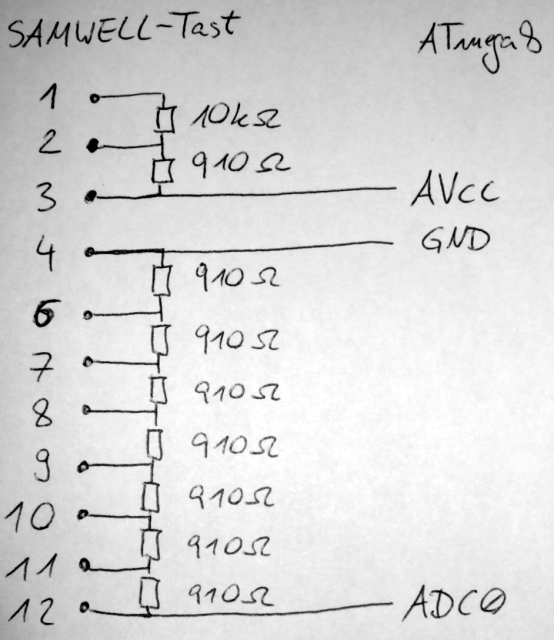 SAMWELL-Tast
ATmega8
1
10kΩ
2
910Ω
3
AVCC
4
GND
910Ω
6
910Ω
7
910Ω
8
910Ω
9
910Ω
10
910Ω
11
910Ω
12
ADC0